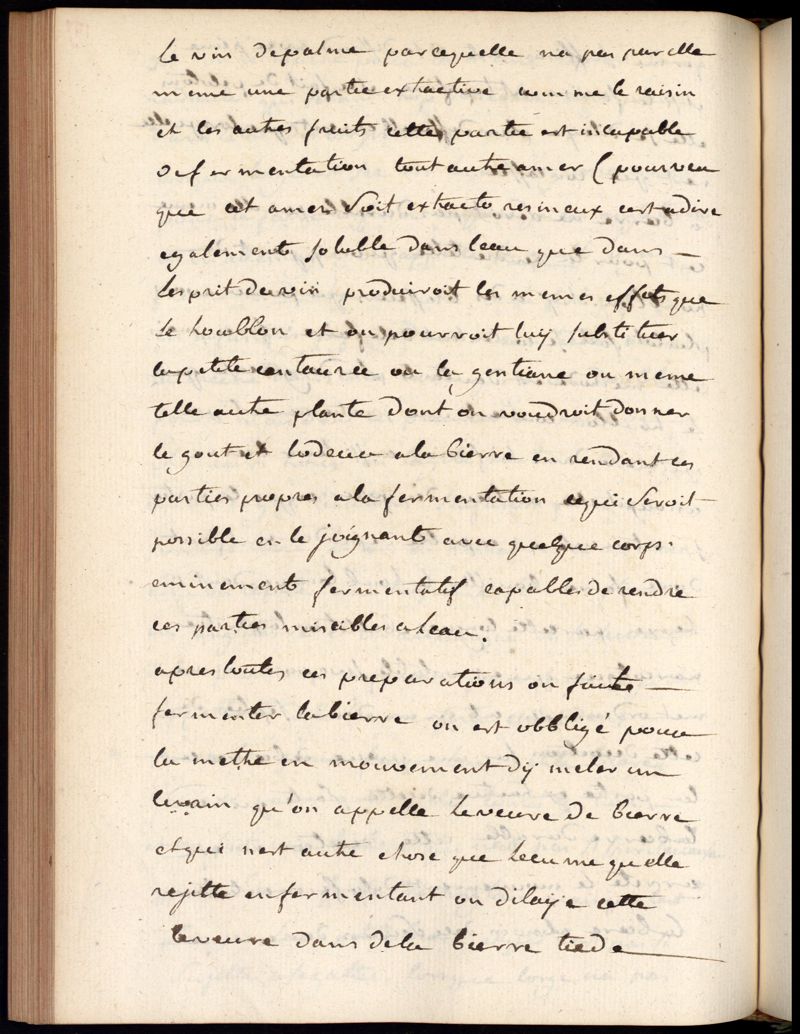 Le vin depalme parcequelle na pas par elle
meme une partie extractive comme le raisin
et les autres fruits cette partie est incapable
de fermentation tout autre amer (pourveu
que cet amer soit extracto resineux cest adire
egalement soluble dans leau que dans
lesprit de vin produiroit les memes effets que
le houblon et on pourroit luy substituer
lapetite centaurée ou la gentiane ou meme
telle autre plante dont on voudroit donner
le gout et lodeur ala bierre en rendant ces
parties propres ala fermentation cequi seroit
possible en le joignant avec quelque corps
eminement fermentatif capables de rendre
ces parties miscibles a leau.
apres toutes ces preparations on faite
fermenter labierre on est obbligé pour
la mettre en mouvement dÿ meler un
levain qu'on appelle leveure de bierre
et qui nest autre chose que lecume quelle
rejette enfermentant on dilaÿe cette
leveure dans dela bierre tiede